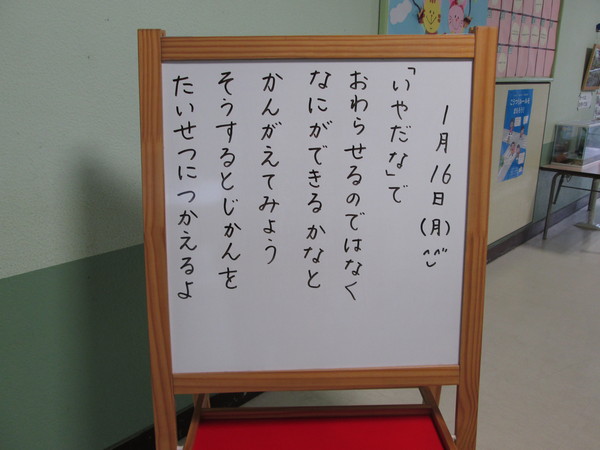 1月16日(月)^^
「いやだな」で
おわらせるのではなく
なにができるかなと
かんがえてみよう
そうするとじかんを
たいせつにつかえるよ